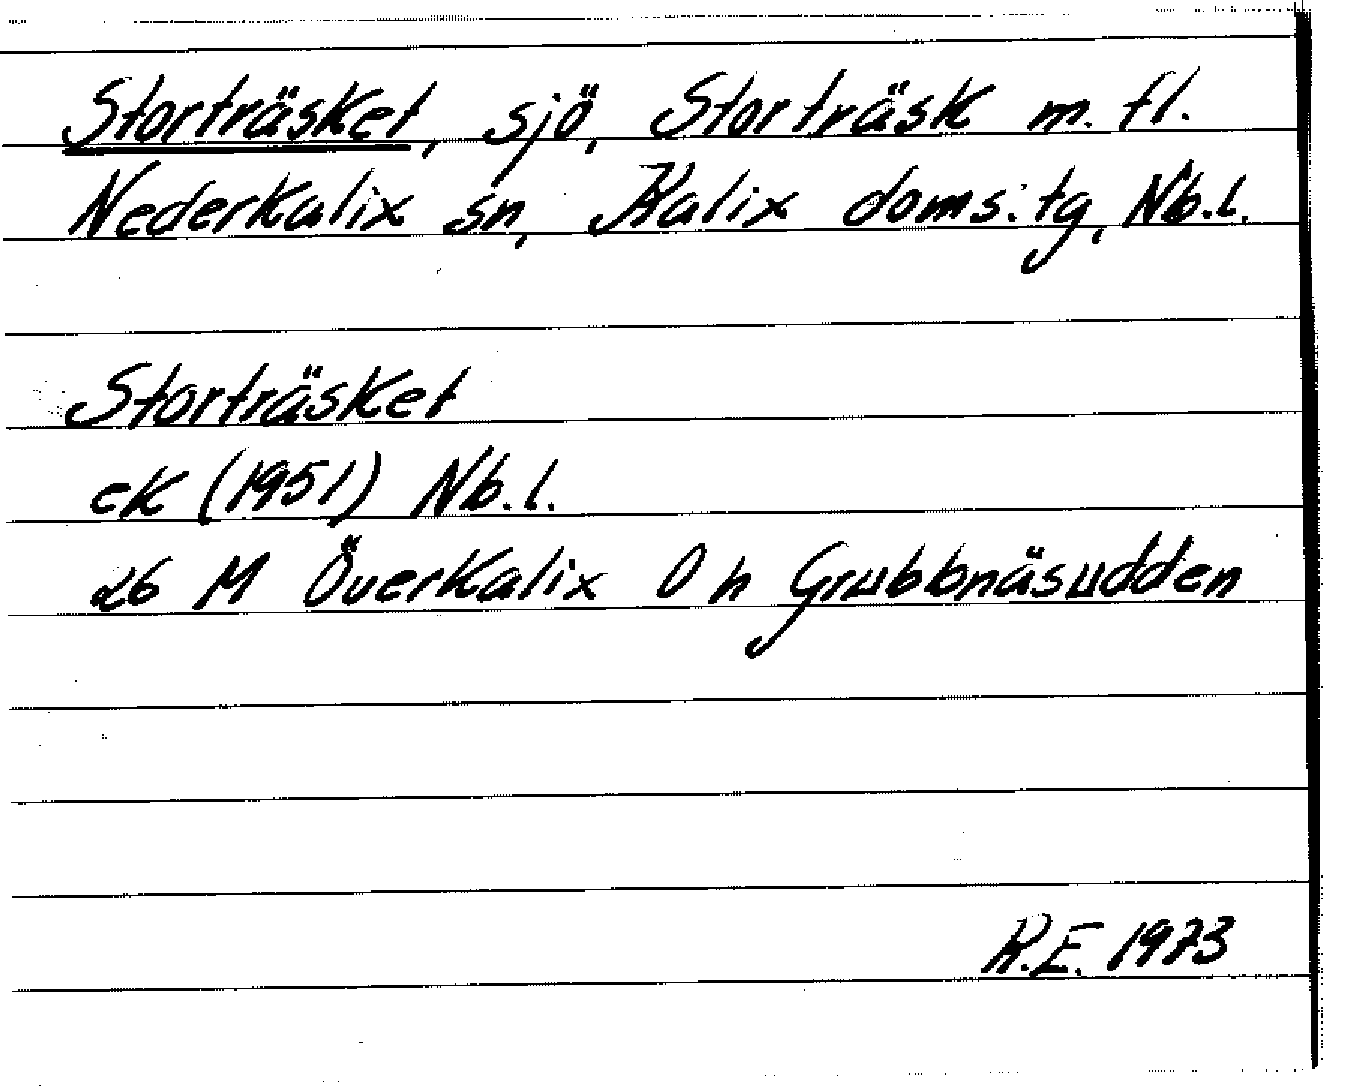 Storträsket, sjö, Storträsk m. fl.
Nederkalix sn, Kalix doms:tg, Nb.l.
Storträsket
ek (1951) Nb.l.
26 M Överkalix 0 h Grubbnäsudden
R.E. 1973